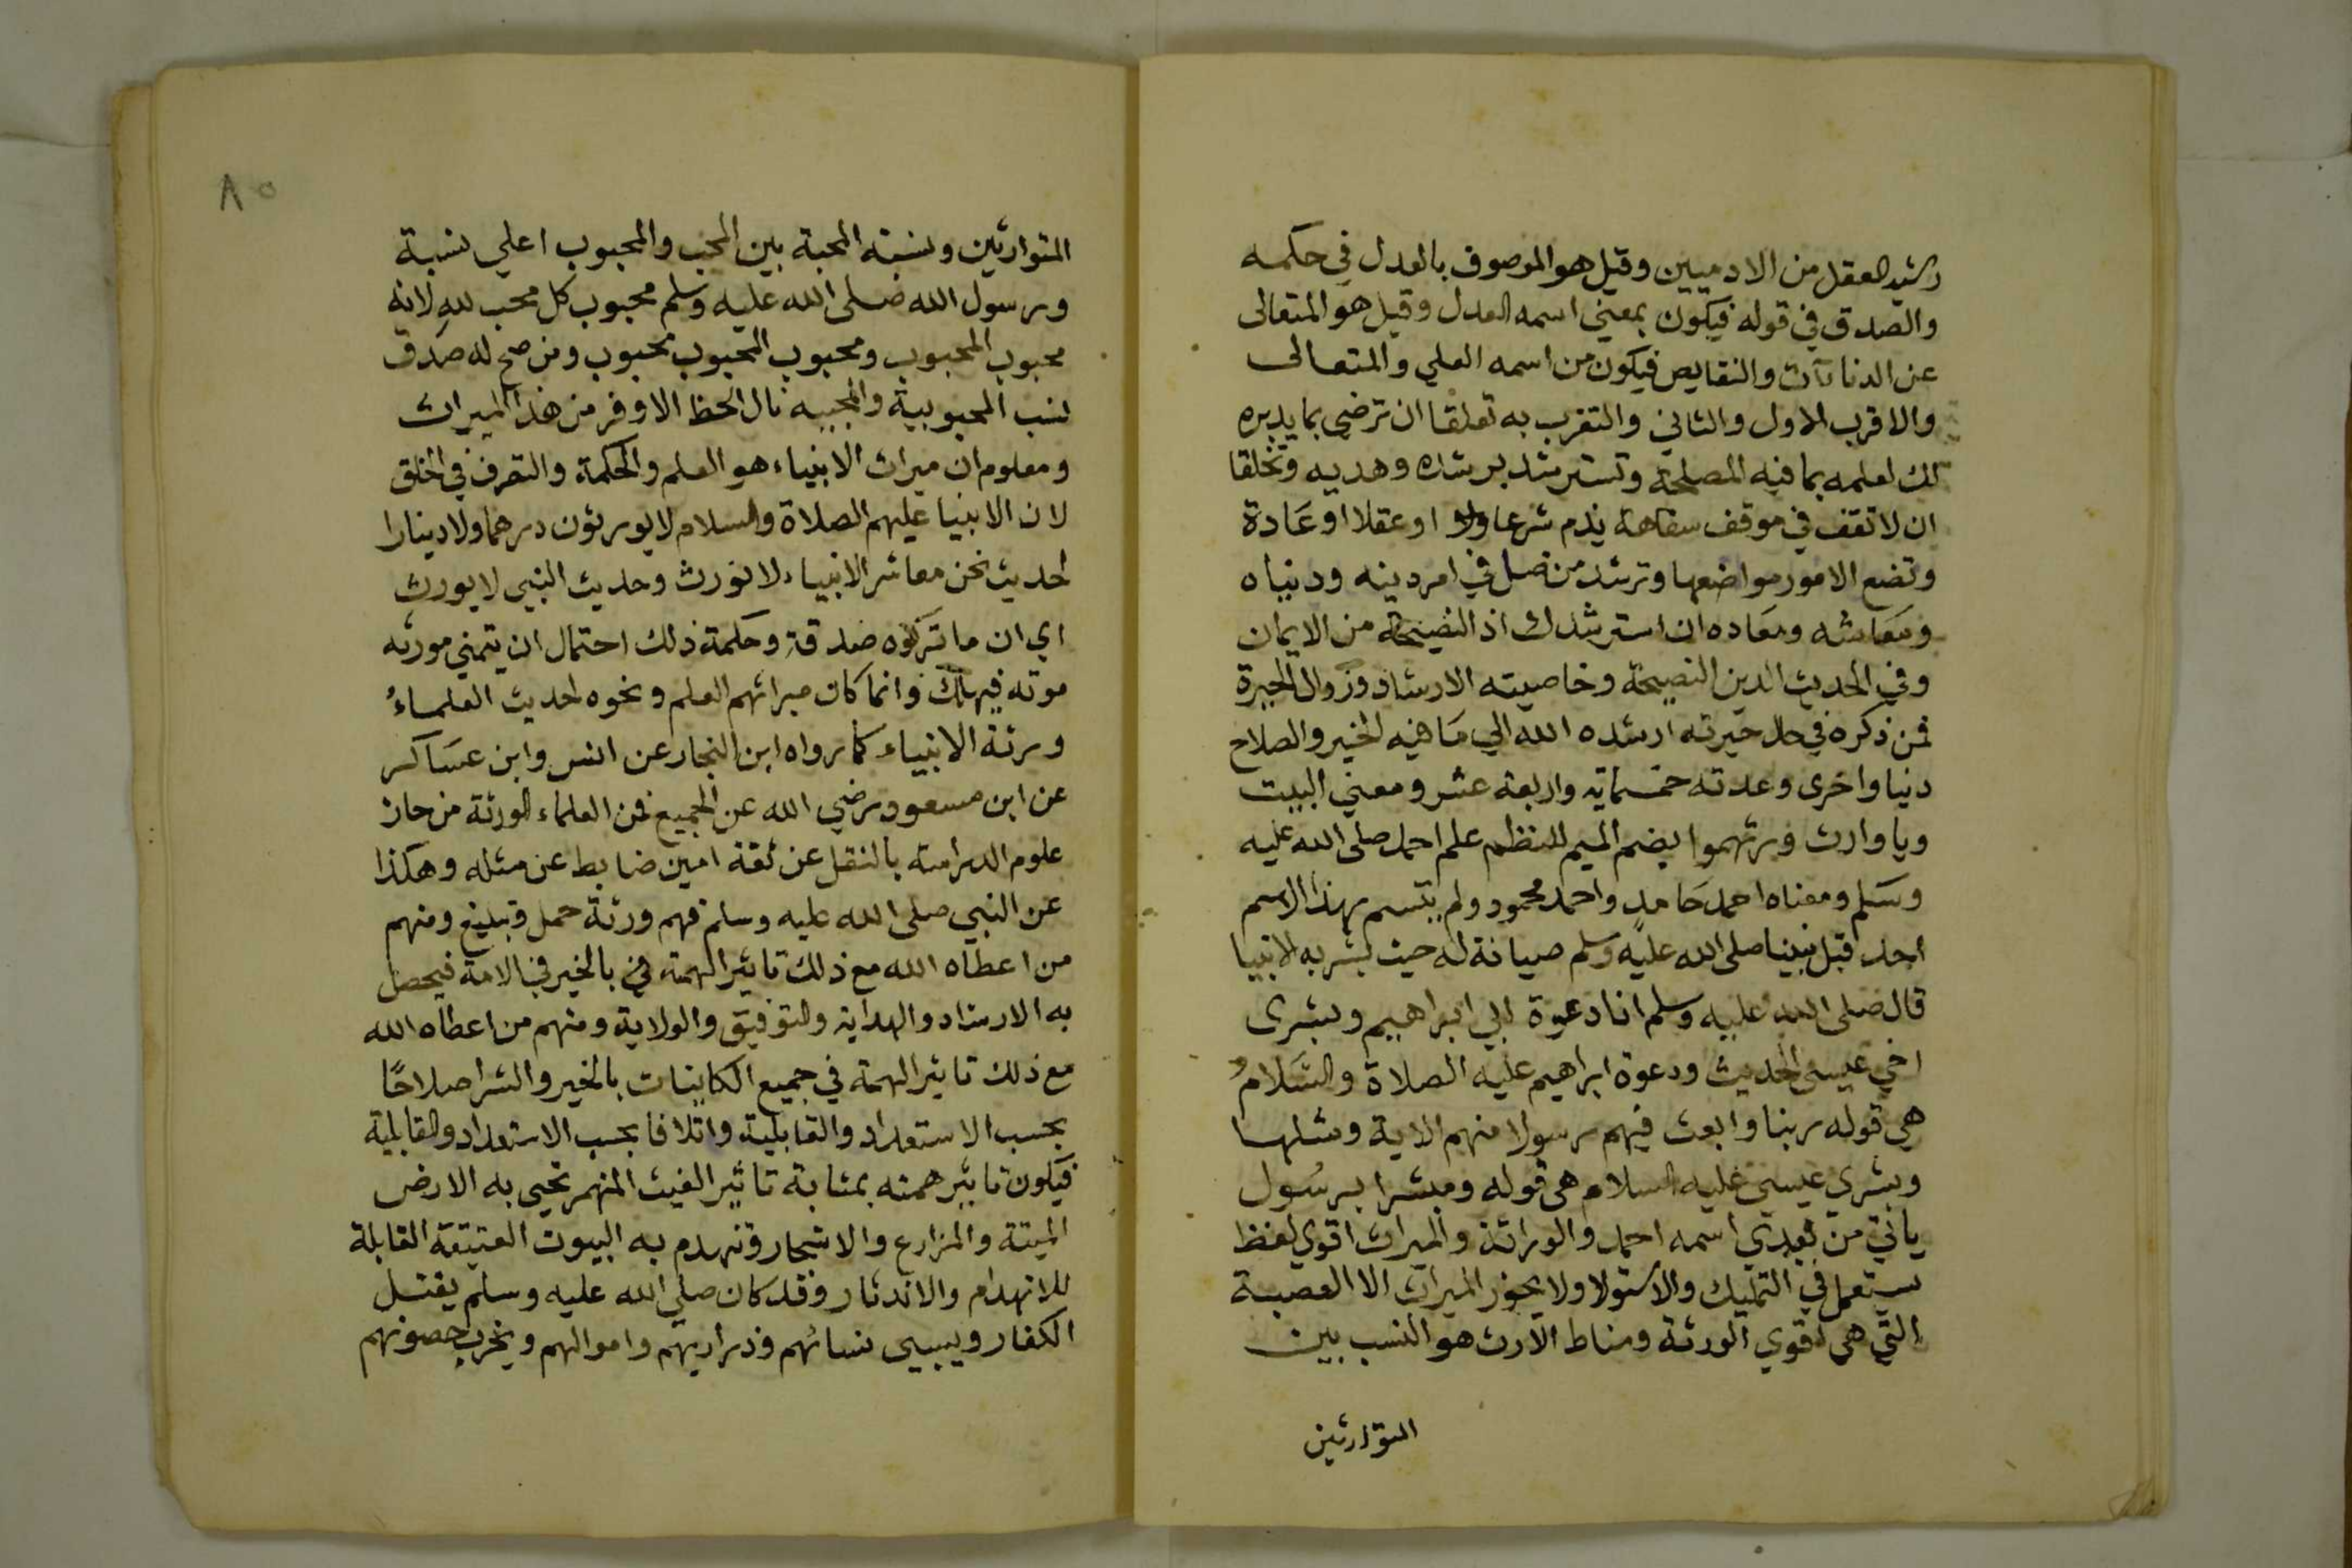 رشيد العقل من الادميين وقيل هو الموصوف بالعدل في حكمه
والصدق في قوله فيكون بمعني اسمه العدل وقيل هو المتعالى
عن الدناءآت والنقايص فيكون من اسمه العلي والمتعالى
والاقرب الاول والثاني والتقرب به تعلقا ان ترضى بما يدبره
لك لعلمه بما فيه المصلحة وتسترشد برشده وهديه وتخلقا
ان لا تقف في موقف سفاهة يذم شرعا او عقلا او عادة
وتضع الامور مواضعها وترشد من ضل في امر دينه ودنياه
ومعاشه ومعاده ان استرشدك اذ النصيحة من الايمان
وفي الحديث الدين النصيحة وخاصيته الارشاد وزوال الحيرة
فمن ذكره في حال حيرته ارشده الله الي ما فيه الخير والصلاح
دنيا واخرى وعدته خمسماية واربعة عشر ومعني البيت
ويا وارث ورثهموا بضم الميم للنظم علم احمد صلى الله عليه
وسلم ومعناه احمد حامد واحمد محمود ولم يتسم بهذا الاسم
احد قبل نبينا صلى الله عليه وسلم صيانة له حيث بشر به الانبيا
قال صلى الله عليه وسلم انا دعوة ابي ابراهيم وبشرى
اخي عيسى الحديث ودعوة ابراهيم عليه الصلاة والسلام
هي قوله ربنا وابعث فيهم رسولا منهم الاية ومثلها
وبشري عيسى عليه السلام هى قوله ومبشرا برسول
ياتي من بعدي اسمه احمد والوراثة والميراث اقوي لفظ
يستعمل في التمليك والاستولا ولا يحوز الميراث الا العصبة
التي هي اقوي الورثة ومناط الارث هو النسب بين
المتوارثين
٨٥
المتوارثين ونسبة المحبة بين المحب والمحبوب اعلي نسبة
ورسول الله صلى الله عليه وسلم محبوب كل محب لله لانه
محبوب المحبوب ومحبوب المحبوب محبوب ومن صح له صدق
نسب المحبوبية والمحبيه نال الحظ الاوفر من هذا الميراث
ومعلوم ان ميراث الانبياء هو العلم والحكمة والتصرف في الخلق
لان الانبيا عليهم الصلاة والسلام لا يورثون درهما ولا دينارا
لحديث نحن معاشر الانبياء لا نورث وحديث النبي لا يورث
اي ان ما تركوه صدقة وحكمة ذلك احتمال ان يتمني مورثه
موته فيهلك وانما كان ميراثهم العلم ونحوه لحديث العلماء
ورثة الانبياء كما رواه ابن النجار عن انس وابن عساكر
عن ابن مسعود رضي الله عن الجميع فمن العلماء الورثة من حاز
علوم الدراسة بالنقل عن ثقة امين ضابط عن مثله وهكذا
عن النبي صلى الله عليه وسلم فهم ورثة حمل وتبليغ ومنهم
من اعطاه الله مع ذلك تاثير الهمة في بالخير في الامة فيحصل
به الارشاد والهداية والتوفيق والولاية ومنهم من اعطاه الله
مع ذلك تاثير الهمة في جميع الكاينات بالخير والشر اصلاحًا
بحسب الاستعداد والقابلية واتلافا بحسب الاستعداد والقابلية
فيكون تاثير همته بمثابة تاثير الغيث المنهمر تحيى به الارض
الميتة والمزارع والاشجار وتنهدم به البيوت العتيقة القابلة
للانهدام والاندثار وقد كان صلى الله عليه وسلم يقتل
الكفار ويسبى نسائهم وذراريهم واموالهم ويخرب حصونهم